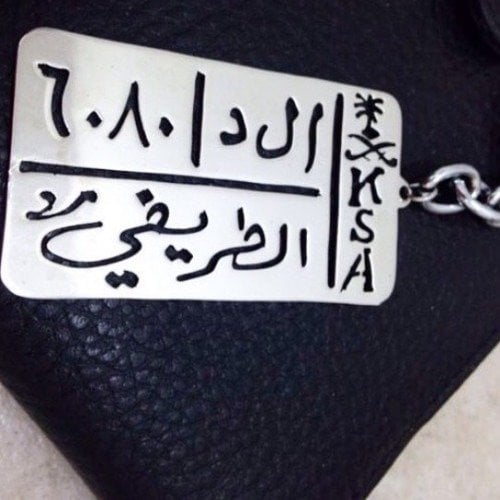 ال د | ٦٠٨٠
الطريفي
KSA